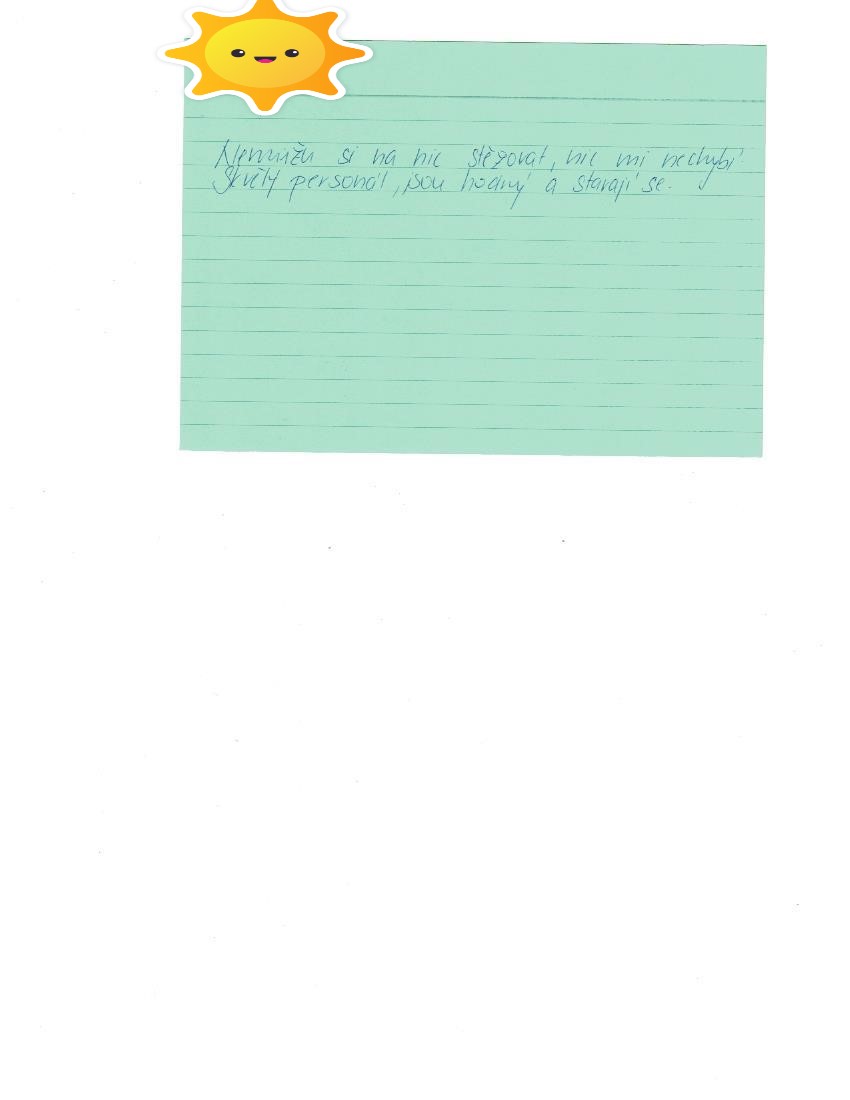 Nemůžu si na nic stěžovat, nic mi nechybí.
Skvělý personál, jsou hodný a starají se.